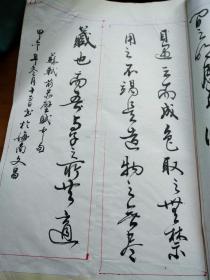 目遇之而成色取之無禁
用之不竭是造物之無盡
藏也而吾与子之所共適
蘇軾前赤壁賦中句
甲午年冬月十三日書於海南文昌